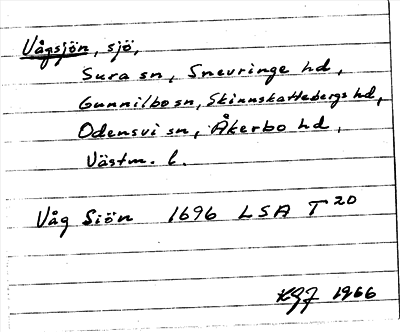 Vågsjön, sjö,
Sura sn, Snevringe hd,
Gunnilbo sn, Skinnskattebergs hd,
Odensvi sn, Åkerbo hd,
Västm. l.
Våg Siön 1696 LSA T 20
KGJ 1966